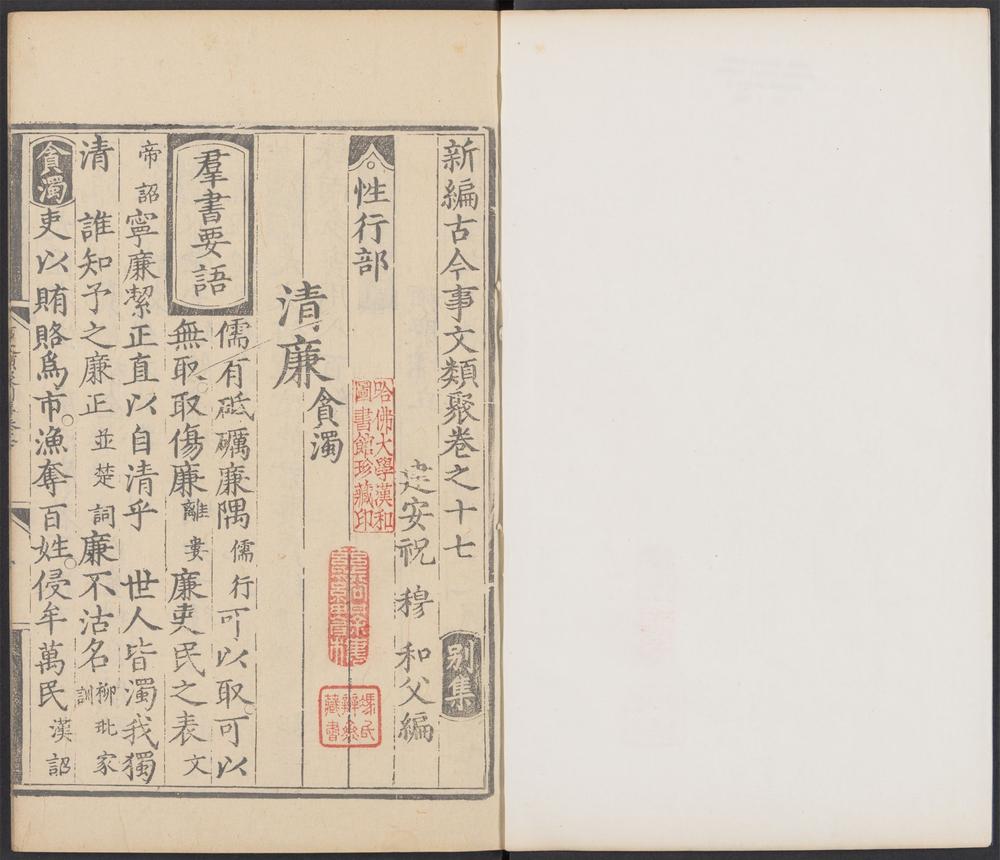 新編古今事文類聚卷之十七 别集
建安祝 穆 和父編
性行部
清廉貪濁
羣書要語
儒有砥礪廉隅儒行可以取可以
無取取傷廉離婁廉吏民之表文
帝詔寧廉絜正直以自清乎 世人皆濁我獨
清 誰知予之廉正並楚詞廉不沽名柳玭家訓
貪濁吏以賄賂爲市漁奪百姓侵牟萬民漢詔
哈佛大學漢和
圖書館珍藏印